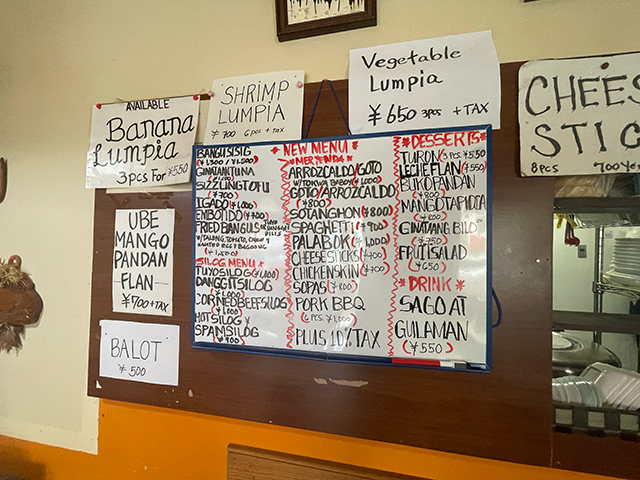 AVAILABLE
Banana
Lumpia
3pcs For ¥550
SHRIMP
LUMPIA
¥700 6pcs + TAX
Vegetable
Lumpia
¥650 3pcs + TAX
CHEES
STIC
8pcs 700ye
UBE
MANGO
PANDAN
FLAN
¥700+TAX
BALOT
¥500
BANGUSISIG
(¥1,300 / ¥1,500)
GINATANTUNA
SIZZLINGTOFU
(¥700)
IGADO (¥1,000)
EMBOTIDO (¥700)
FRIED BANGUS
W/TALONG, TOMATO,
(¥1,500)
SILOG MENU
TUYOSILOG (¥1,000)
DANGGITSILOG
(¥1,000)
CORNEDBEEFSILOG
(¥1,000)
HOTSILOG Y
SPAMSILOG
(¥900)
NEW MENU
MERYENDA
ARROZCALDO/GOTO
W/TOKWA BABOY (¥1,000)
GOTO/ARROZCALDO
(¥800)
SOTANGHON (¥800)
SPAGHETTI (¥900)
PALABOK (¥1,000)
CHEESESTICKS (¥700)
CHICKENSKIN (¥700)
SOPAS (¥800)
PORK BBQ
(6PCS ¥1,000)
PLUS 10% TAX
DESSERTS
TURON (3PCS ¥550)
LECHEFLAN (¥700)
BUKOPANDAN
(¥800)
MANGOTAPIOCA
(¥800)
GINATANG BILO
(¥750)
FRUITSALAD
(¥650)
DRINK
SAGO AT
GULAMAN
(¥550)